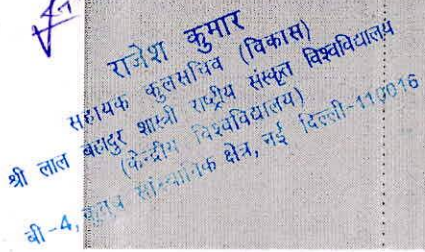 राजेश कुमार
सहायक कुलसचिव (विकास)
श्री लाल बहादुर शास्त्री राष्ट्रीय संस्कृत विश्वविद्यालय
(केन्द्रीय विश्वविद्यालय)
बी-4, कुतुब सांस्थानिक क्षेत्र, नई दिल्ली-110016